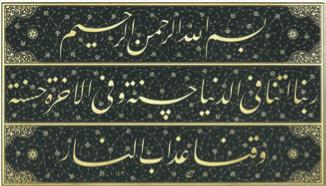 بسم الله الرحمن الرحیم
ربنا اتنا فی الدنیا حسنة و فی الاخرة حسنة
و قنا عذاب النار